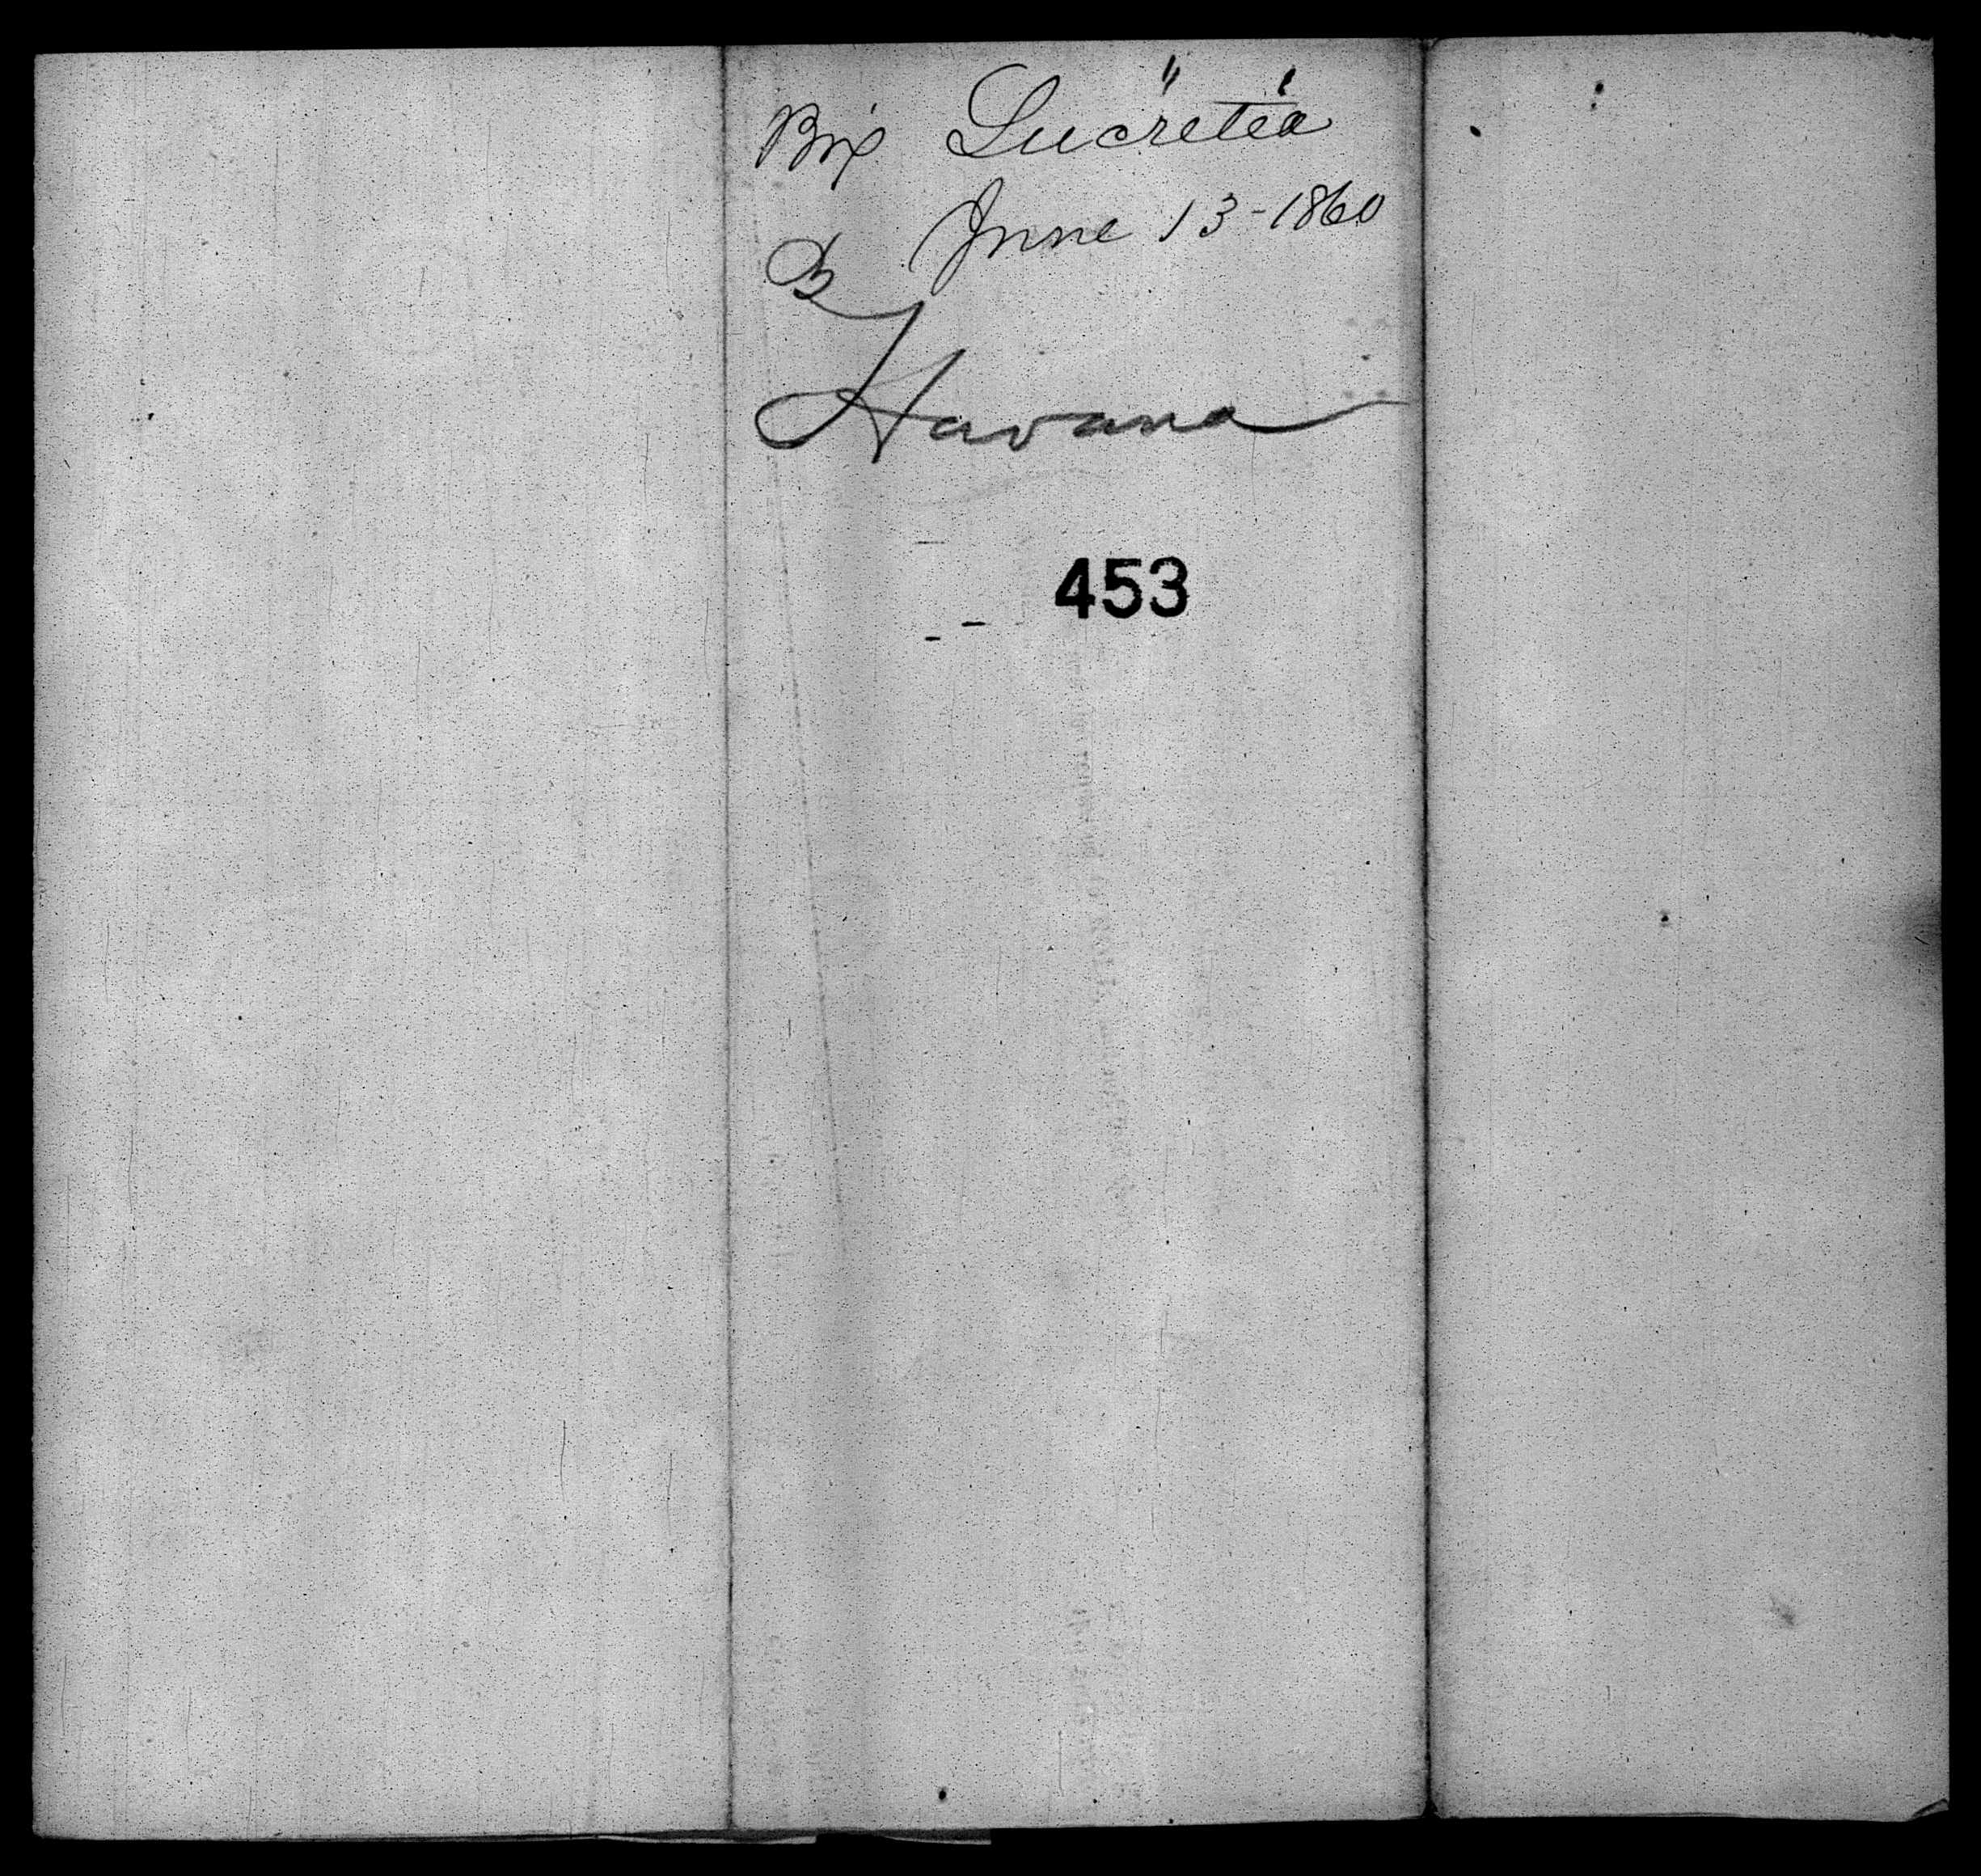 Brig Lucretia
June 13-1860
B
Havana
453